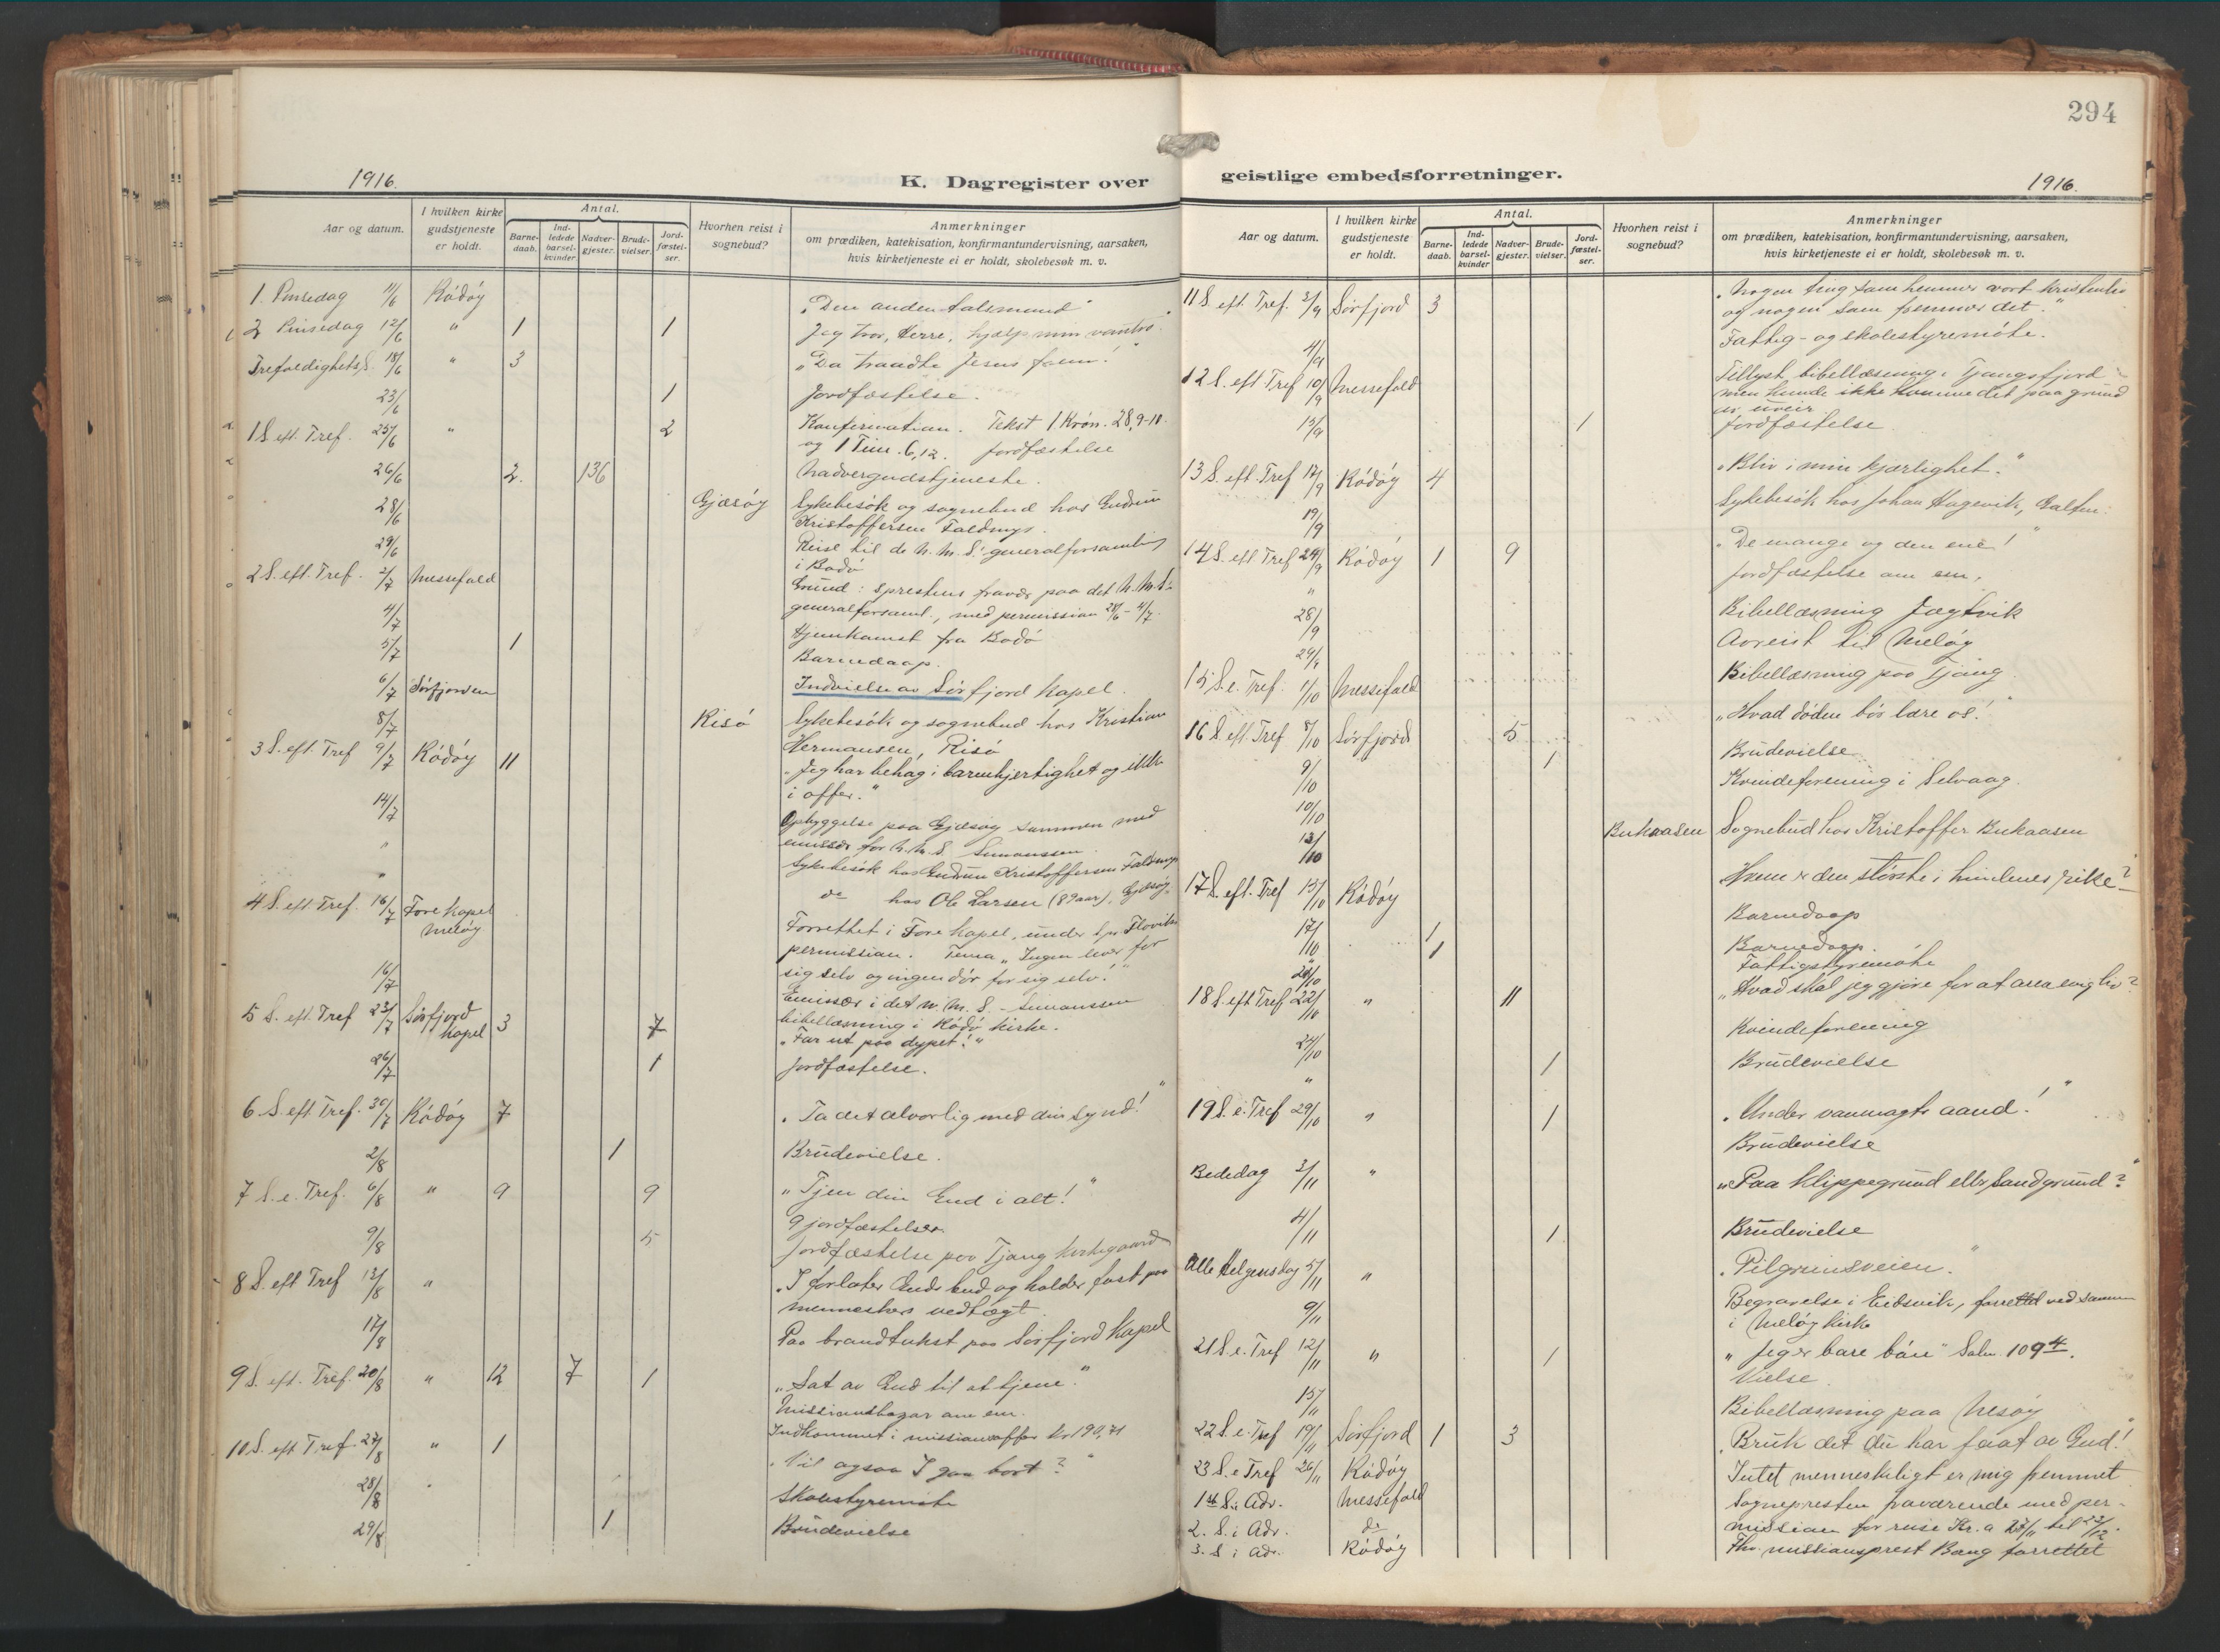 294
1916.
K. Dagregister over
Aar og datum.
I hvilken kirke gudstjeneste er holdt.
Antal.
Barne-daab.
Ind-ledede barsel-kvinder
Nadver-gjester.
Brude-vielser.
Jord-fæstel-ser.
Hvorhen reist i sognebud?
Anmerkninger
om prædiken, katekisation, konfirmantundervisning, aarsaken,
hvis kirketjeneste ei er holdt, skolebesøk m. v.
1. Pinsedag 11/6 Rødøy "Den anden talsmand"
2 Pinsedag 12/6 " 1 1 Jeg tror, Herre, hjælp min vantro.
Trefoldighets S. 18/6 " 3 "Da traadte Jesus frem!"
23/6 1 Jordfæstelse.
1 S. eft. Tref. 25/6 " 2 Konfirmation. Tekst 1 Krøn. 28,9-10.
og 1 Tim. 6,12. Jordfæstelse
26/6 2. 136 Nadvergudstjeneste.
28/6 Gjæsøy Sykebesøk og sognebud hos Gudrun
Kristoffersen
29/6 Reise til de N.M.S. generalforsamling
i Bodø
2 S. eft. Tref. 2/7 Messefold Grund: sprestens fravær paa det N.M.S:
generalforsaml., med permission 28/6 - 4/7.
4/7 Hjemkomst fra Bodø
5/7 1 Barnedaap.
6/7 Sørfjorden Indvielse av Sørfjord Kapel.
8/7 Risø Sykebesøk og sognebud hos Kristian
Hermansen, Risø
3 S. eft. Tref 9/7 Rødøy 11 "Jeg har behag i barmhjertighet og ikke
i offer."
14/7 Opbyggelse paa Gjæsøy sammen med
emissær for N.M.S. Simonssen.
" Sykebesøk hos Gudrun Kristoffersen
" do hos Ole Larsen (89 aar), Gjæsøy.
4 S. eft. Tref. 16/7 Fore Kapel
Meløy
Forrettet i Fore Kapel, under
permission. Tema "Ingen lever for
sig selv og ingen dør for sig selv!"
16/7 Emissær i det N.M.S. - Simonssen
bibellæsning i Rødø kirke.
5 S. eft. Tref 23/7 Sørfjord
Kapel 3 7 "Far ut paa dypet!"
26/7 1 Jordfæstelse.
6 S. eft. Tref. 30/7 Rødøy 7 "Ta det alvorlig med din synd!"
2/8 1 Brudevielse.
7 S. e. Tref. 6/8 " 9 9 "Tjen din Gud i alt!"
9 jordfæstelser.
9/8 5 Jordfæstelse paa Tjong kirkegaard
8 S. eft Tref 13/8 " "I forlater Guds bud og holder fast paa
menneskers vedtægt.
17/8 Paa brandtakst paa Sørfjord Kapel
9 S. eft. Tref. 20/8 " 12 7 1 "Sat av Gud til at tjene."
Missionsbazar om em.
Indkommet i missionsoffer kr 190,71
10 S. eft Tref. 27/8 " 1 "Vil ogsaa I gaa bort?"
28/8 Skolestyremøte
29/8 1 Brudevielse
geistlige embedsforretninger.
1916.
Aar og datum.
I hvilken kirke gudstjeneste er holdt.
Antal.
Barne-daab.
Ind-ledede barsel-kvinder
Nadver-gjester.
Brude-vielser.
Jord-fæstel-ser.
Hvorhen reist i sognebud?
Anmerkninger
om prædiken, katekisation, konfirmantundervisning, aarsaken,
hvis kirketjeneste ei er holdt, skolebesøk m. v.
11 S. eft. Tref. 3/9 Sørfjord 3 "Nogen ting som hemmer vort kristenliv
og nogen som fremmer det."
4/9 Fattig- og skolestyremøte.
12 S. eft Tref 10/9 Messefold Tillyst bibellæsning i Tjongsfjord
men kunde ikke komme det paa grund
av uveir
13/9 1 Jordfæstelse
13 S. eft. Tref 17/9 Rødøy 4 "Bliv i min kjærlighet."
19/9 Sykebesøk hos Johan Hagevik,
14 S. eft Tref 24/9 Rødøy 1 9 "De mange og den ene!"
" Jordfæstelse om em,
28/9 Bibellæsning Jægtvik
29/9 Avreist til Meløy
15 S. e. Tref. 1/10 Messefold Bibellæsning paa Tjong
16 S. eft. Tref 8/10 Sørfjord 5 "Hvad døden bør lære os!"
9/10 1 Brudevielse
10/10 Kvindeforening i Selvaag.
13/10 Bukaasen Sognebud hos Kristoffer Bukaasen
17 S. eft. Tref 15/10 Rødøy Hvem er den største i himlenes rike?
17/10 1 Barnedaap
" 1 Barnedaap.
20/10 Fattigstyremøte
18 S. eft Tref 22/10 " 11 "Hvad skal jeg gjøre for at arve evig liv?
24/10 Kvindeforening
" 1 Brudevielse
19 S. e. Tref 29/10 " 1 "Under vanmagts aand!"
Brudevielse
Bededag 3/11 " "Paa klippegrund eller sandgrund?"
4/11 1 Brudevielse
Alle Helgensdag 5/11 " "Pilgrimsveien."
9/11 Begravelse i Eidsvik, forrettet ved
i Meløy kirke
21 S. e. Tref 12/11 " 1 "Jeg er bare bøn" Salm. 109 4.
Vielse.
15/11 Bibellæsning paa Nesøy
22 S. e. Tref 19/11 Sørfjord 1 3 "Bruk det du har faat av Gud!"
23 S. e Tref 26/11 Rødøy Intet menneskeligt er mig fremmet
1ste S. i Adv. Messefold Sognepresten fraværende med per-
2. S. i Adv. do mission for reise Kr.a 27/11 til 23/12.
3. S i Adv. Rødøy Fhv. missionsprest Bang forrettet